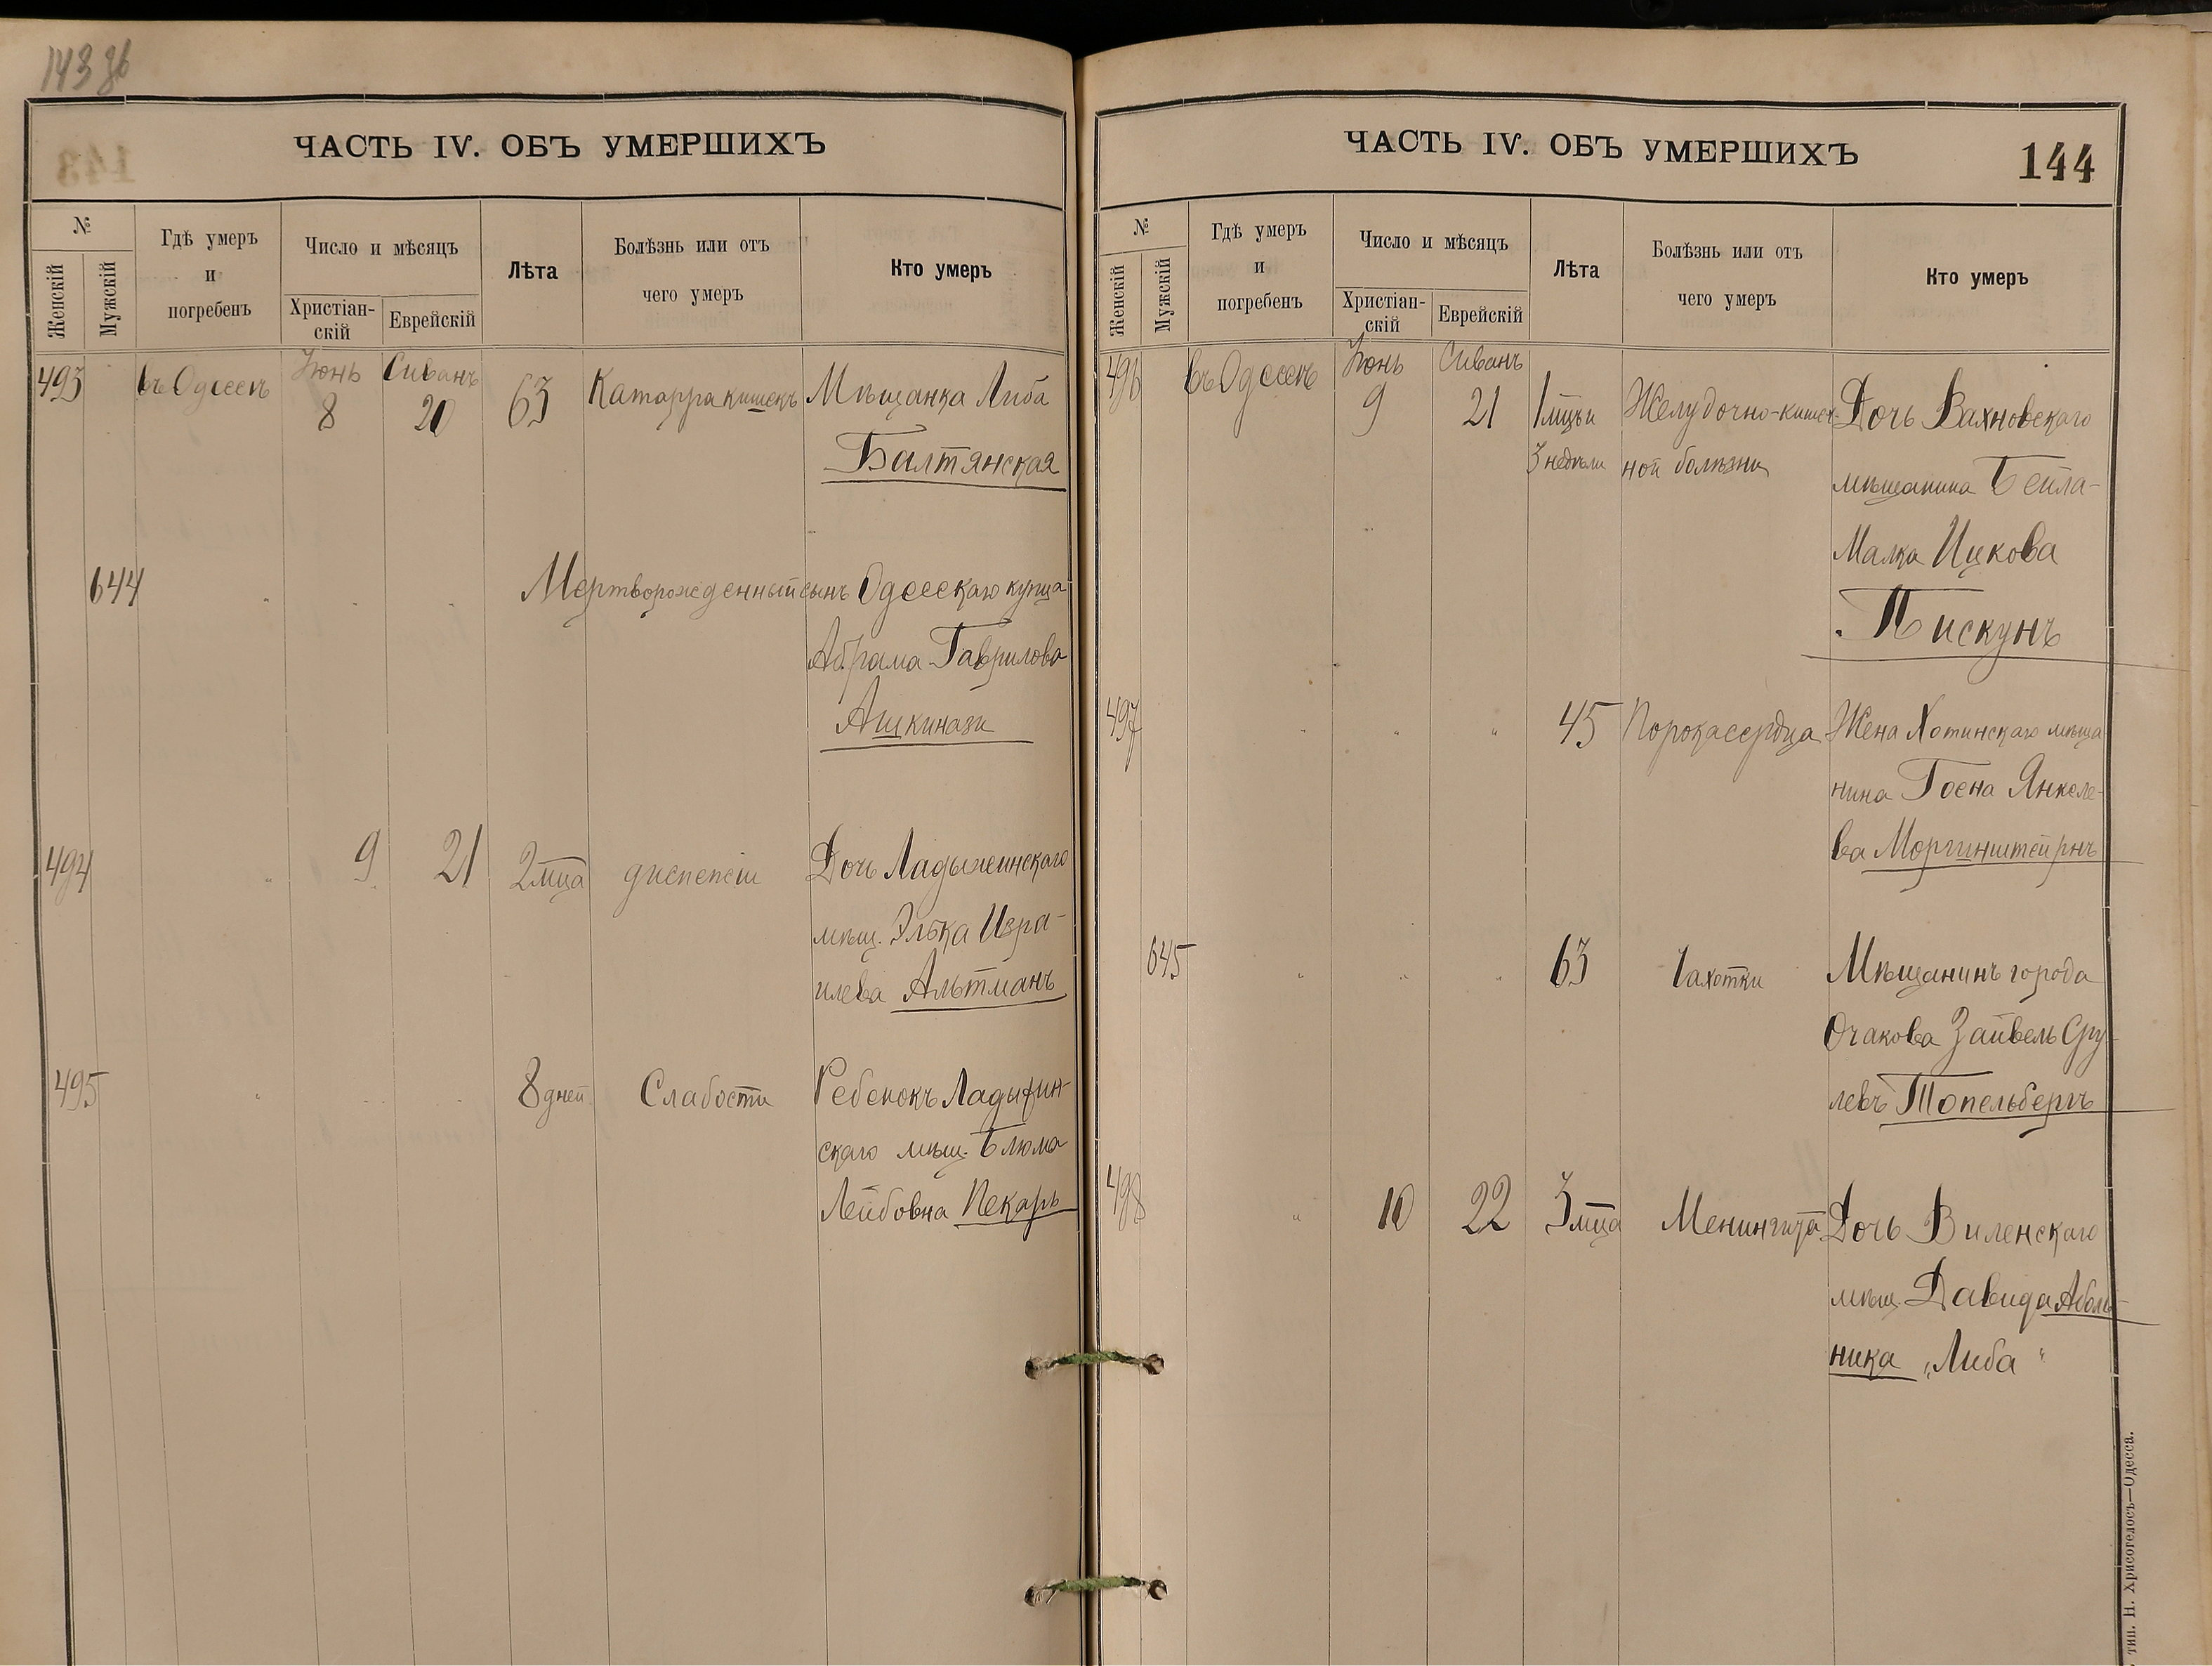 143 об
ЧАСТЬ IV. ОБЪ УМЕРШИХЪ
№
Женскій
Мужскій
Гдѣ умеръ
и
погребенъ
Число и мѣсяцъ
Христіан-
скій
Еврейскій
Лѣта
Болѣзнь или отъ
чего умеръ
Кто умеръ
493 въ Одессѣ Іюнь 8 Сиванъ 20 63 Катарра кишекъ Мѣщанка Либа
Балтянская
644 " " " Мертворожденный сынъ Одесскаго купца
Абрама Гаврилова
Ашкинази
494 " 9 21 2 мца диспепсіи Дочь Ладыжинскаго
мѣщ. Элька Изра-
илева Альтманъ
495 " " " 8 дней Слабости Ребенокъ Ладыжин-
скаго мѣщ. Блюма
Лейбовна Пекарь
ЧАСТЬ IV. ОБЪ УМЕРШИХЪ
144
№
Женскій
Мужскій
Гдѣ умеръ
и
погребенъ
Число и мѣсяцъ
Христіан-
скій
Еврейскій
Лѣта
Болѣзнь или отъ
чего умеръ
Кто умеръ
496 въ Одессѣ Іюнь 9 Сиванъ 21 1 мцъ и Желудочно-кишеч- Дочь Вахновскаго
3 недѣли ной болѣзни мѣщанина Бейла-
Малка Ицкова
Пискунъ
497 " " " 45 Порока сердца Жена Хотинскаго мѣща
нина Гоена Янкеле-
ва Моргинштейрнъ
645 " " " 63 Чахотки Мѣщанинъ города
Очакова Зайвель Сру-
левъ Топельбергъ
498 " 10 22 3 мца Менингита Дочь Виленскаго
мѣщ. Давида Аболь-
ника „Либа"
тип. Н. Хрисогелосъ—Одесса.